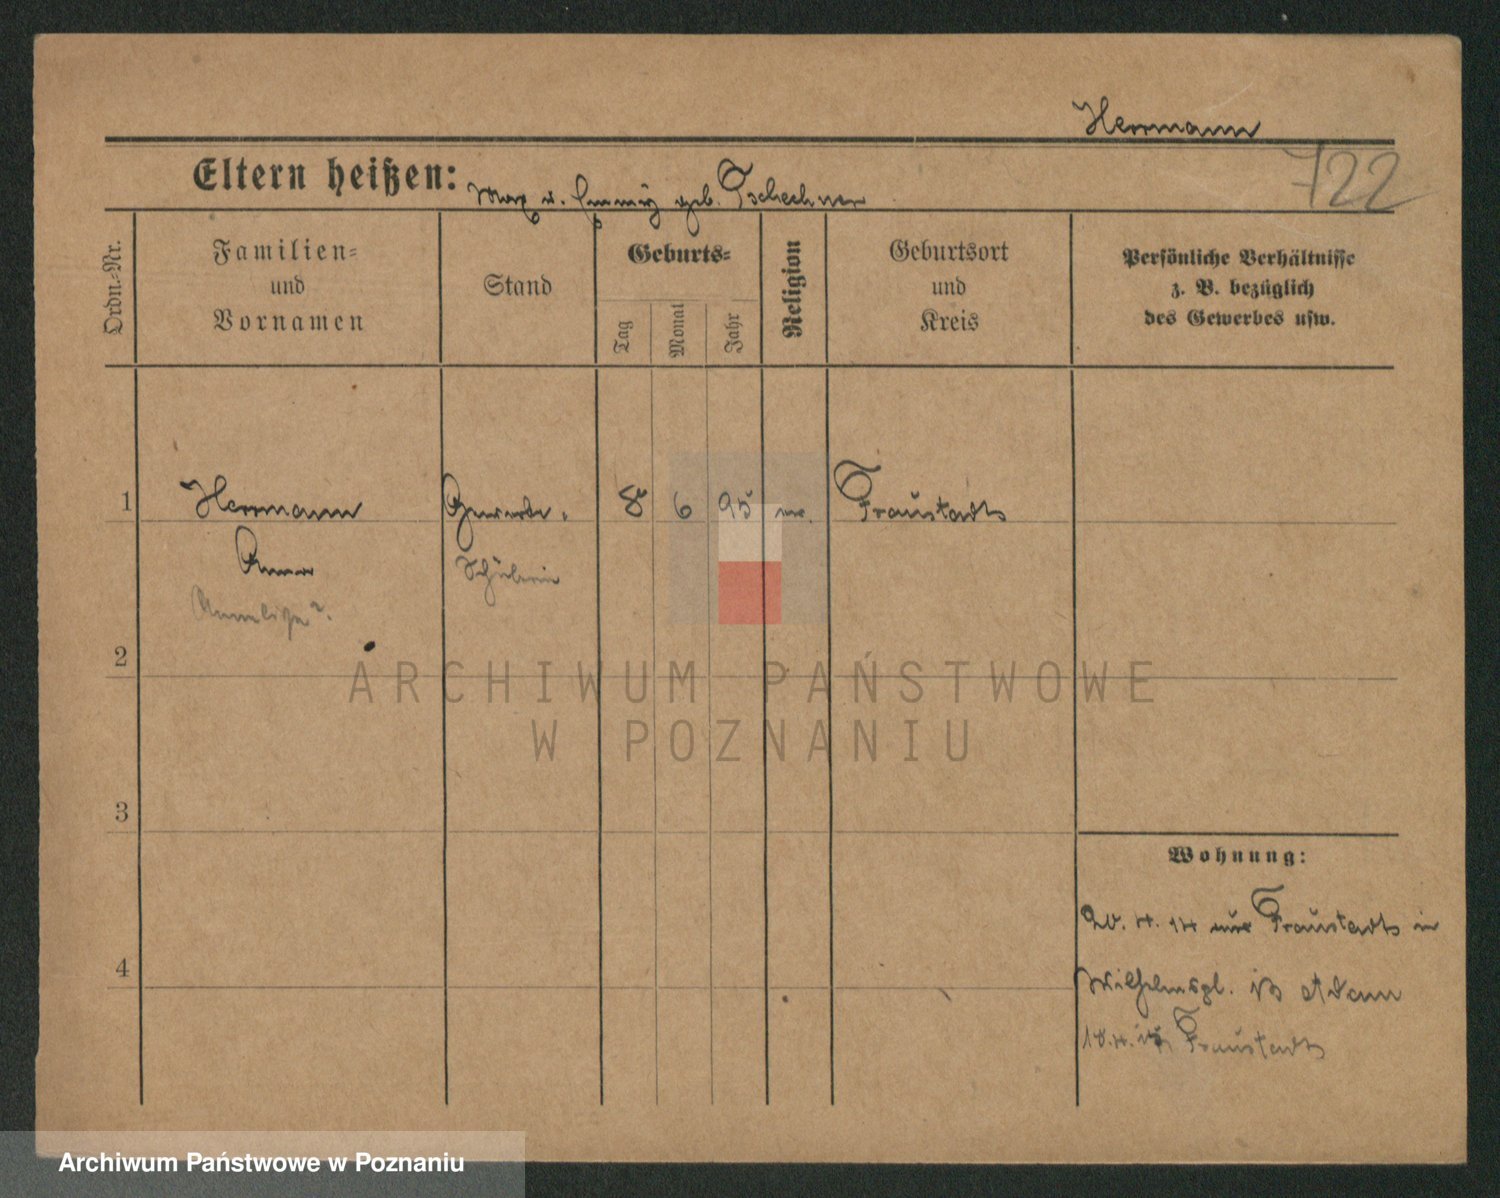 Herrmann
722
Eltern heißen: Max u. geb. Tschechner
Ordn.-Nr.
Familien-
und
Vornamen
Stand
Geburts-
Tag
Monat
Jahr
Religion
Geburtsort
und
Kreis
Persönliche Verhältnisse
z. B. bezüglich
des Gewerbes usw.
1 Herrmann Gewerbe- 8 6 95 Fraustadt
Anna Schülerin
2
ARCHIWUM PAŃSTWOWE
W POZNANIU
3
Wohnung:
20. 4. 14 aus Fraustadt in
4
Wilhelmspl. Adam
Fraustadt
Archiwum Państwowe w Poznaniu